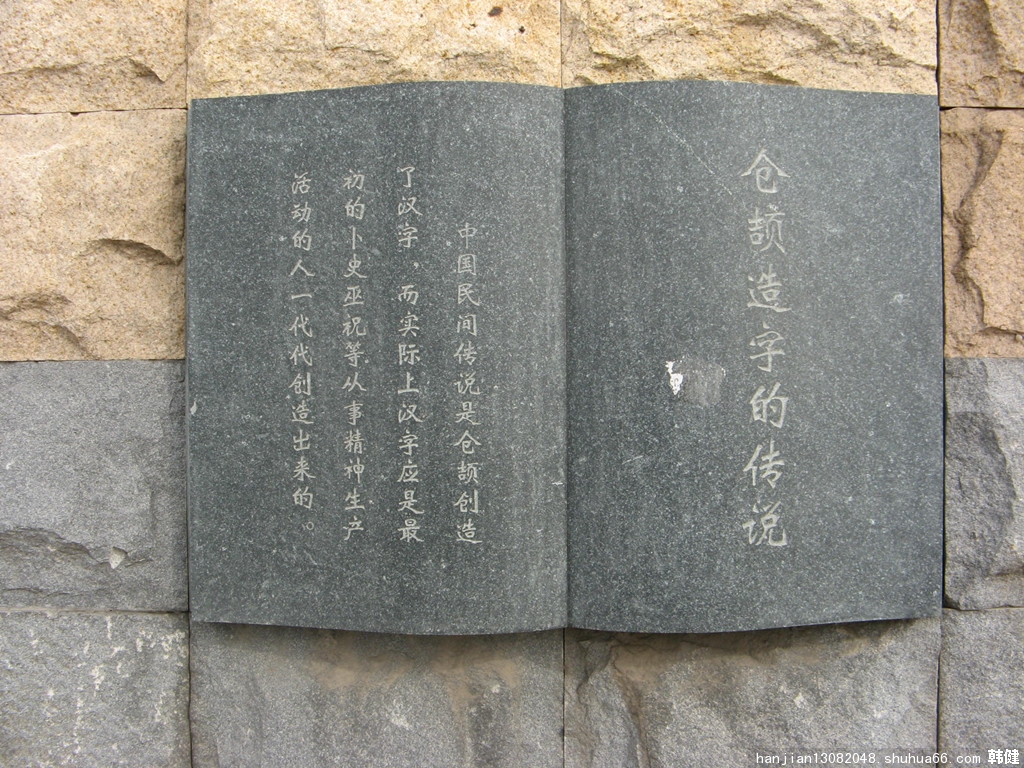 仓颉造字的传说
中国民间传说是仓颉创造
了汉字，而实际上汉字应是最
初的卜史巫祝等从事精神生产
活动的人一代代创造出来的。
hanjian13082048.shuhua66.com 韩健